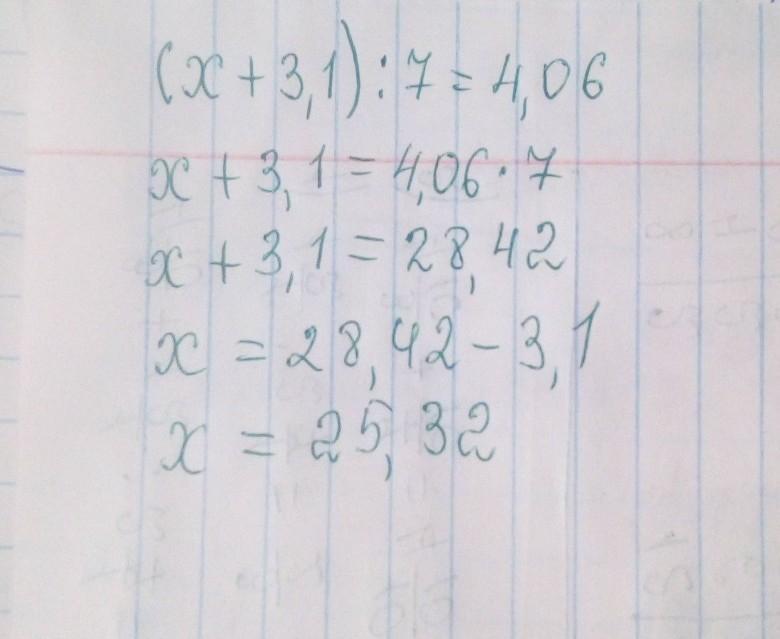 (x + 3,1) : 7 = 4,06
x + 3,1 = 4,06 · 7
x + 3,1 = 28,42
x = 28,42 - 3,1
x = 25,32